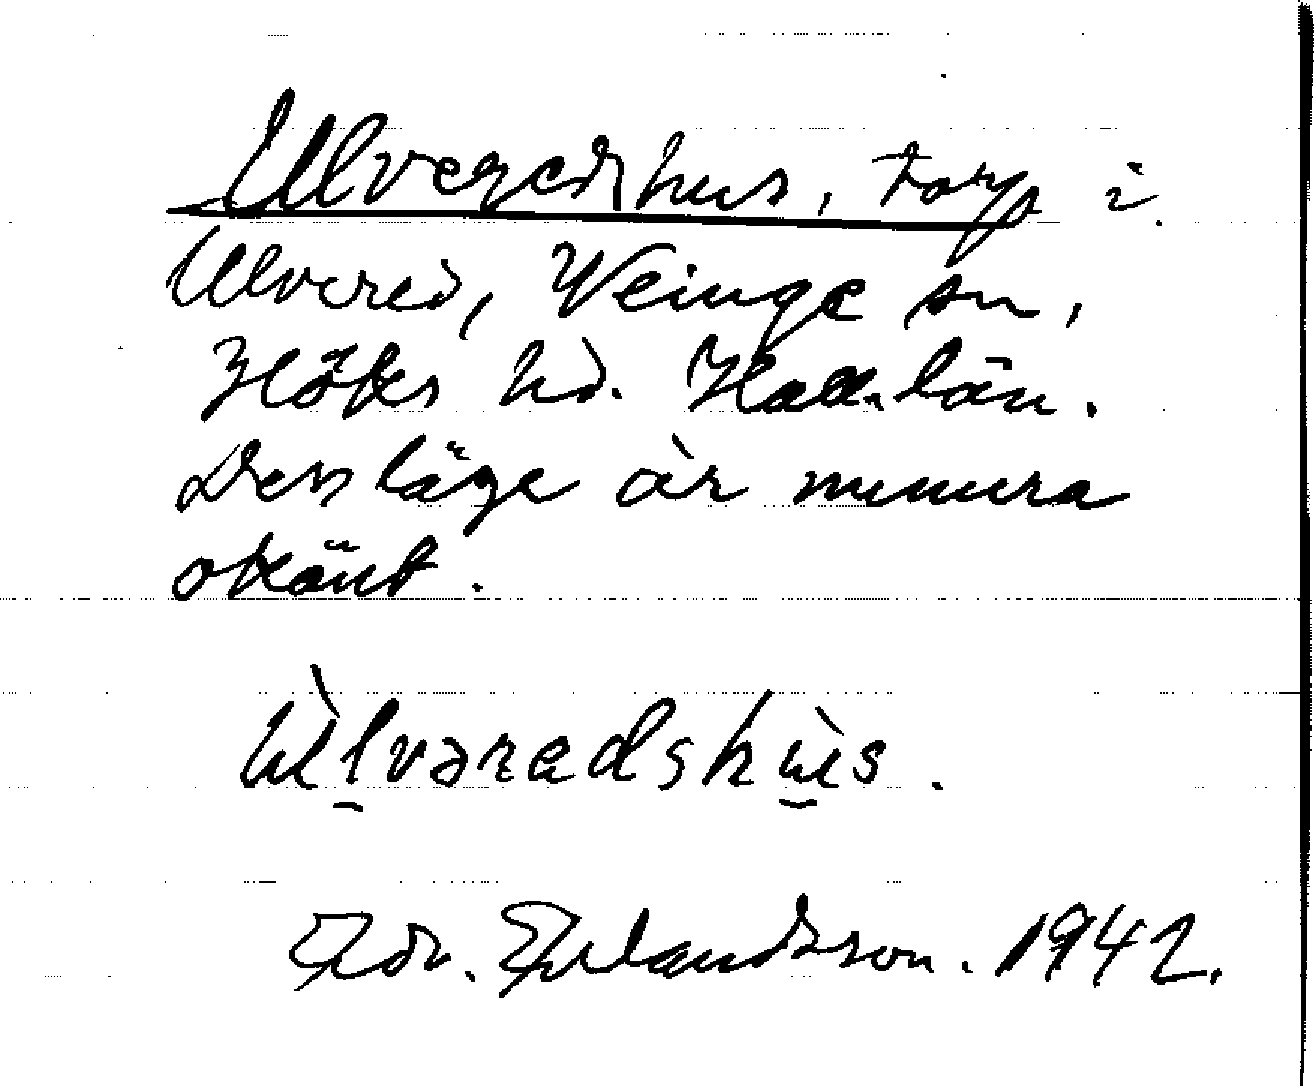 Ulveredshus, torp i
Ulvered, Veinge sn,
Höks hd. Hall. län.
Dess läge är numera
okänt.
Ùlvaradshùs.
Edv. Erlandsson. 1942.